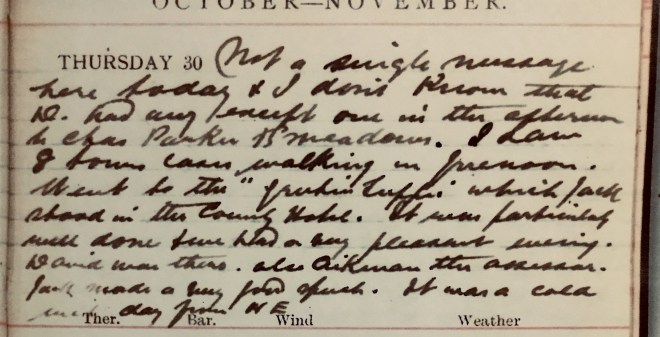 OCTOBER—NOVEMBER.
THURSDAY 30 Not a single message
here today & I don't know that
D. had any except one in the afternoon
to Chas Parker B'meadows. I saw
8 town cases walking in forenoon.
Went to the " " which Jack
stood in the County Hotel. It was particularly
well done & we had a very pleasant evening.
David was there. also Aikman the assessor.
Jack made a very good speech. It was a cold
day from N E
Ther. Bar. Wind Weather